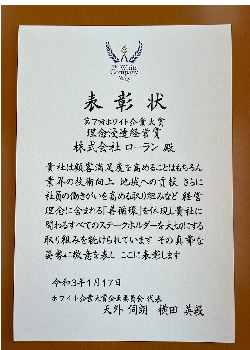 White
Company
表彰状
第7回ホワイト企業大賞
理念浸透経営賞
株式会社 ローラン 殿
貴社は顧客満足度を高めることはもちろん
業界の技術向上 地域への貢献 さらに
社員の働きがいを高める取り組みなど 経営
理念に含まれる「善循環」を体現し貴社に
関わるすべてのステークホルダーを大切にする
取り組みを続けられています その真摯な
姿勢に敬意を表し ここに表彰します
令和3年1月17日
ホワイト企業大賞企画委員会 代表
天外 伺朗 横田 英毅